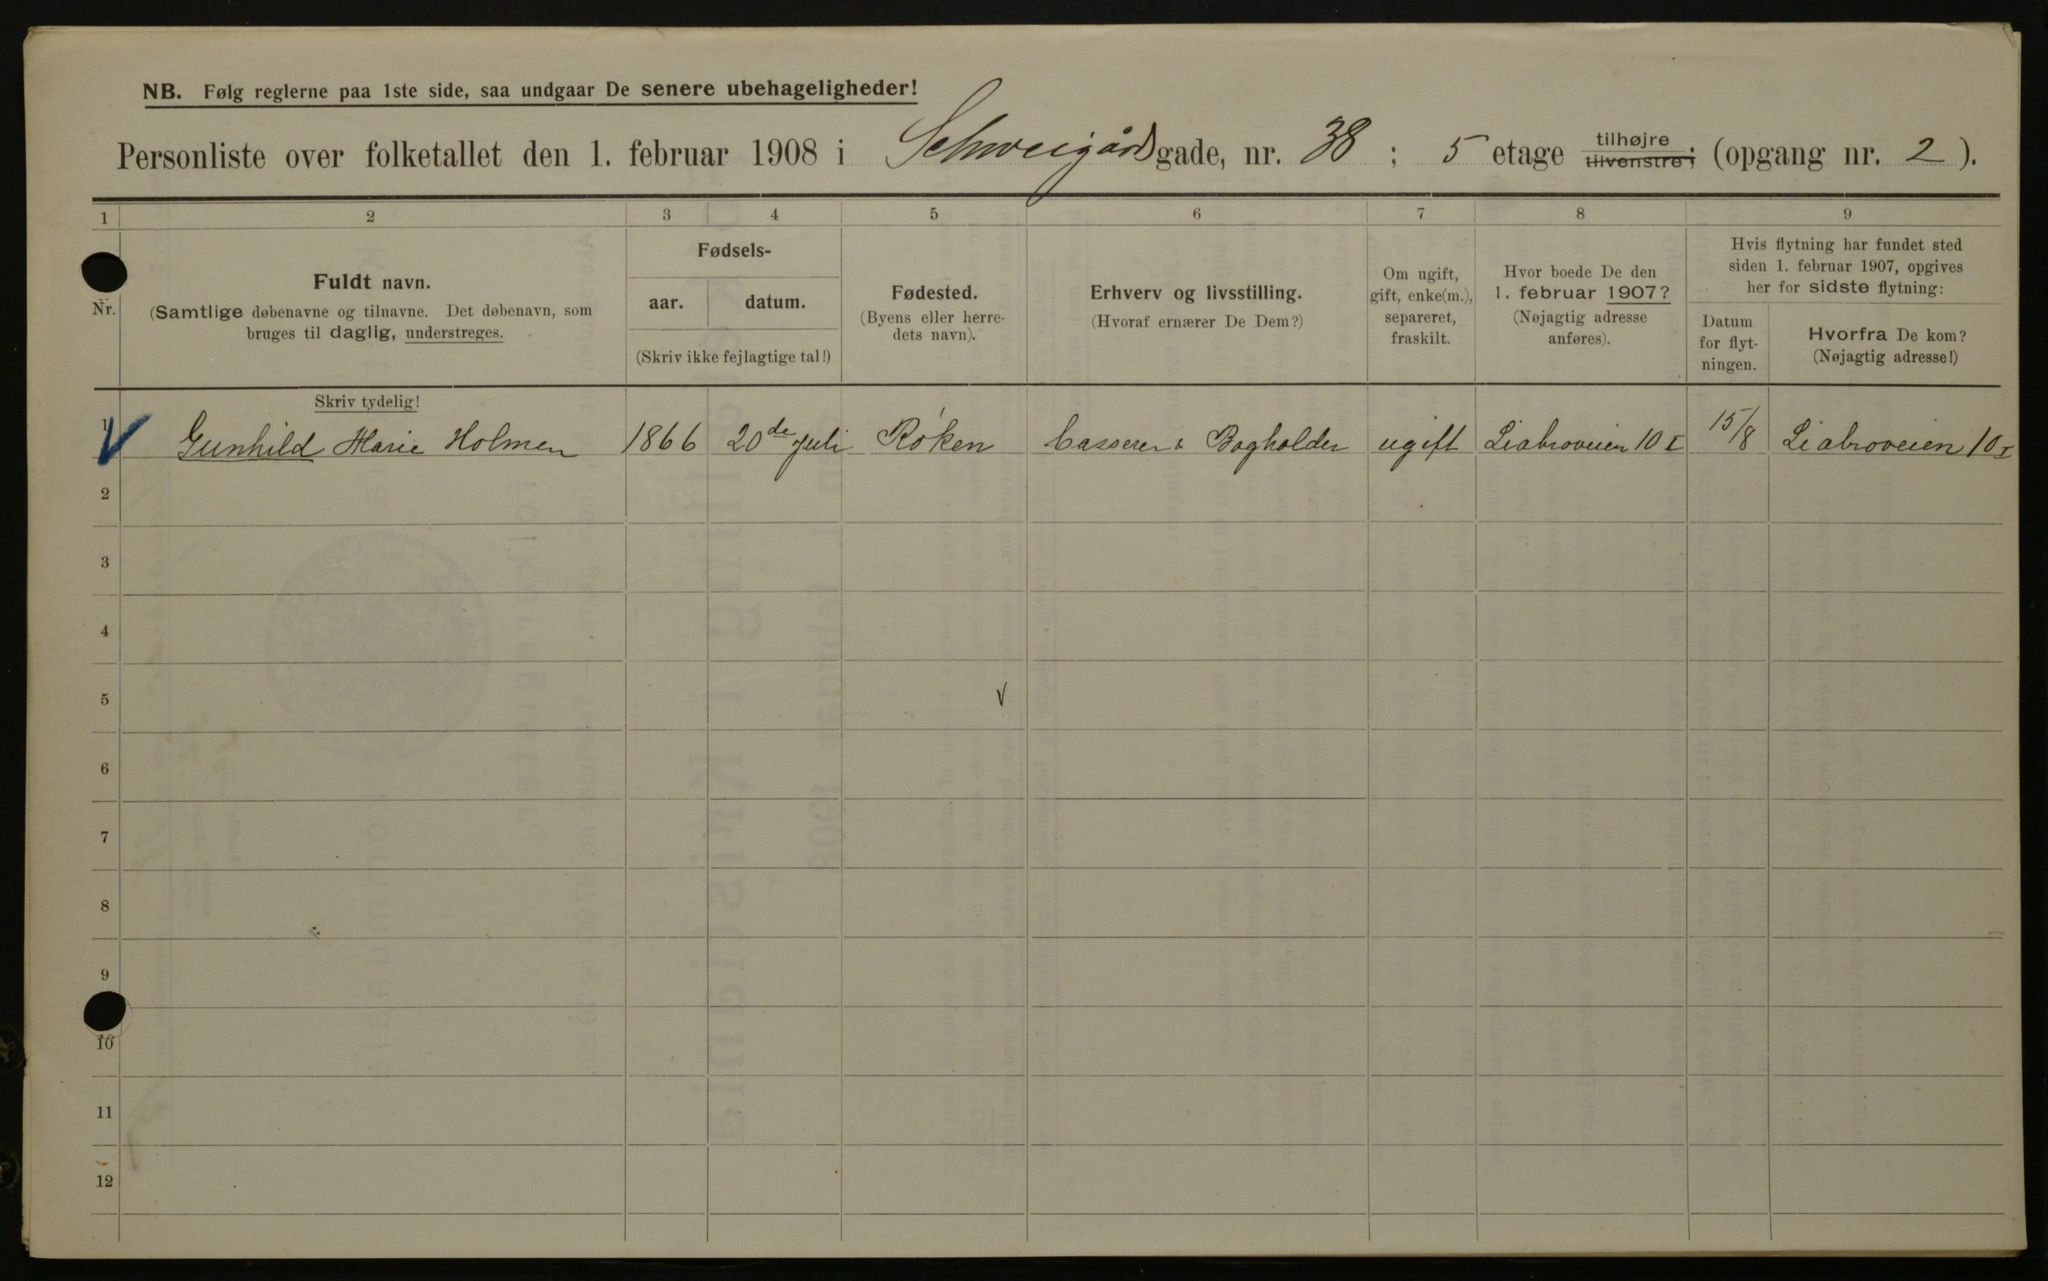 NB. Følg reglerne paa 1ste side, saa undgaar De senere ubehageligheder!
Personliste over folketallet den 1. februar 1908 i Schweigårdsgade, nr. 38 ; 5 etage tilhøjre tilvenstre; (opgang nr. 2 ).
1 2 3 4 5 6 7 8 9
Nr.
Fuldt navn.
(Samtlige døbenavne og tilnavne. Det døbenavn, som
bruges til daglig, understreges.
Skriv tydelig!
Fødsels-
aar. datum.
(Skriv ikke fejlagtige tal!)
Fødested.
(Byens eller herre-
dets navn).
Erhverv og livsstilling.
(Hvoraf ernærer De Dem?)
Om ugift,
gift, enke(m.),
separeret,
fraskilt.
Hvor boede De den
1. februar 1907?
(Nøjagtig adresse
anføres).
Hvis flytning har fundet sted
siden 1. februar 1907, opgives
her for sidste flytning:
Datum
for flyt-
ningen.
Hvorfra De kom?
(Nøjagtig adresse!)
1 Gunhild Marie Holmen 1866 20de juli Røken Casserer & Bogholder ugift Liabroveien 10 I 15/8 Liabroveien 10 I
2
3
4
5
6
7
8
9
10
11
12